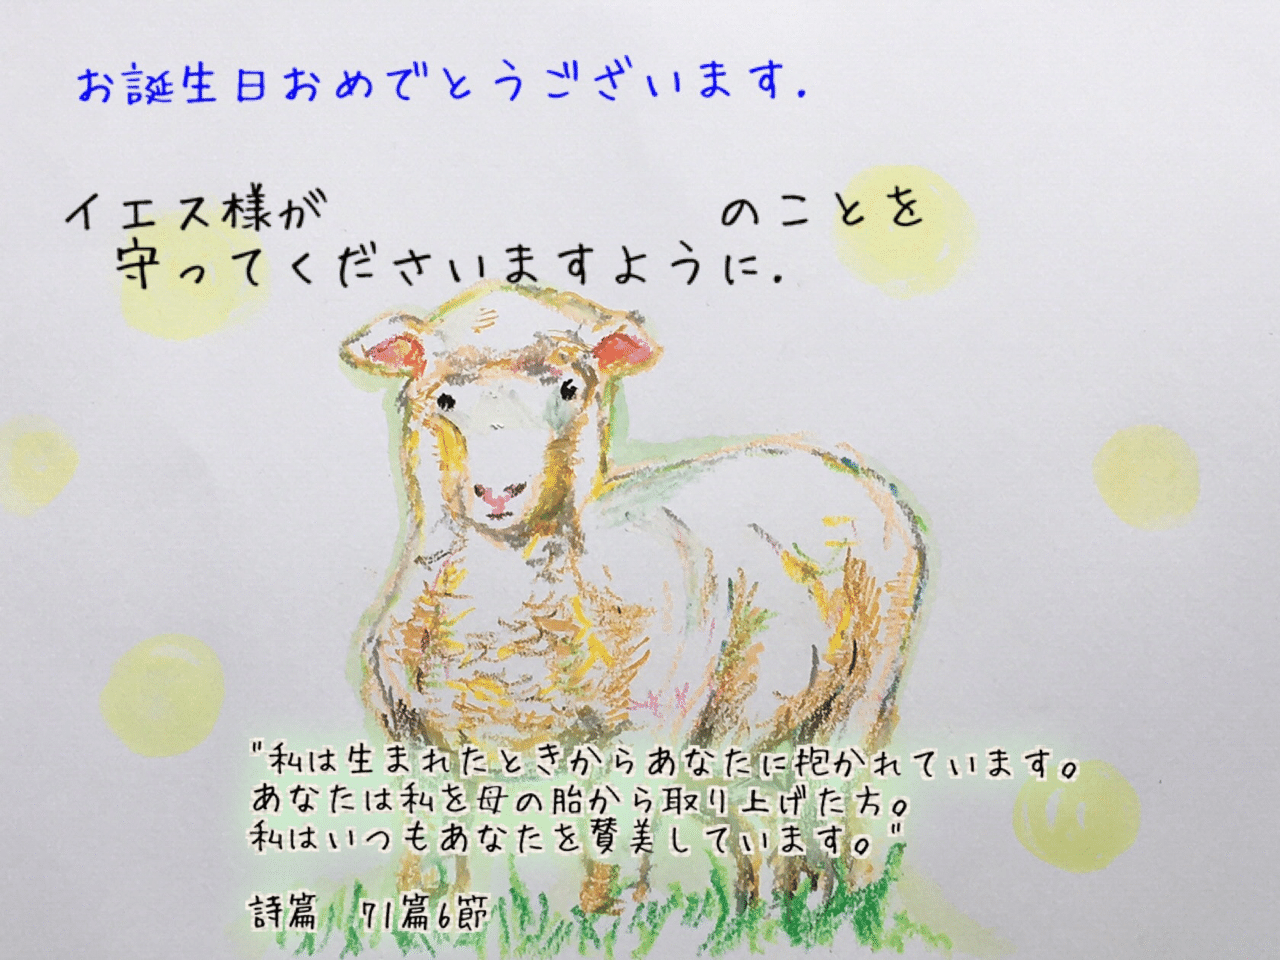 お誕生日おめでとうございます.
イエス様が　　　　　　　のことを
守ってくださいますように.
"私は生まれたときからあなたに抱かれています。
あなたは私を母の胎から取り上げた方。
私はいつもあなたを賛美しています。"
詩篇　71篇6節